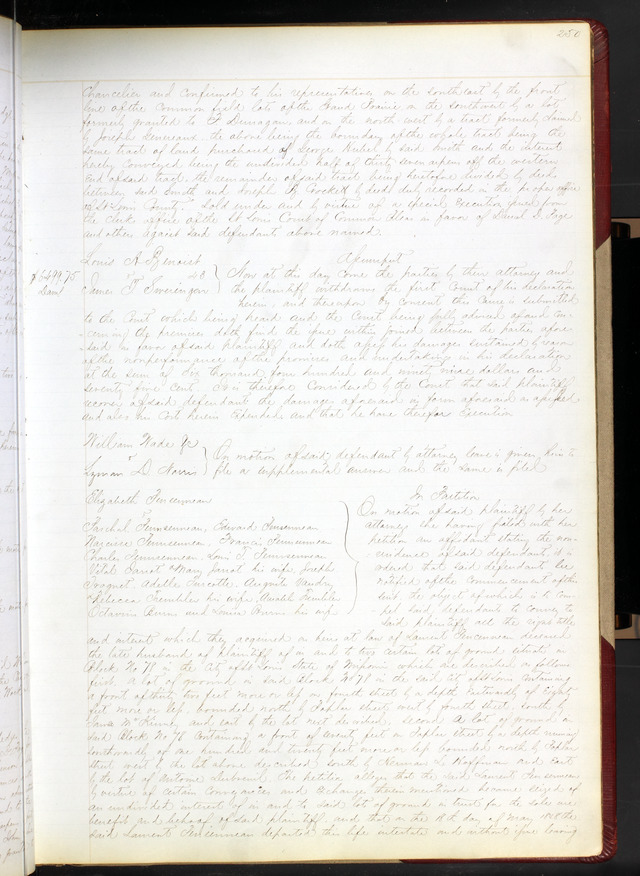 250
Chancelier and confirmed to his representatives on the south east by the front
line of the common field lot of the Grand Prairie on the southwest by a lot
formerly granted to F Dunnagan and on the north west by a tract formerly
by Joseph the above being the boundary of the whole tract being the
same tract of land purchased of George by said Smith and the interest
hereby conveyed being the undivided half of thirty seven arpens off the western
end of said tract, the remainder of said tract being heretofore divided by deed
between said Smith and Joseph by deed duly recorded in the proper office
of St Louis County. Sold under and by virtue of a special Execution issued from
the Clerk office of the St Louis Court of Common Pleas in favor of Daniel D. Page
and others against said defendant above named.
Louis A Benoist
vs Assumpsit
James T Swearingen
$6499.75
Dam
Now at this day come the parties by their attorneys and
the plaintiff withdraws the first Count of his declaration
herein, and thereupon by consent this Cause is submitted
to the Court which being heard and the Court being fully advised of and con-
cerning the premises doth find the issue within joined between the parties afore-
said in favor of said plaintiff and doth assess his damages sustained by reason
of the nonperformance of the promises and undertakings in his declaration
at the sum of Six thousand four hundred and ninety nine dollars and
seventy five cents. It is therefore Considered by the Court that said plaintiff
recover of said defendant the damages aforesaid in form aforesaid assessed
and also his Cost herein Expended, and that he have therefor Execution
William Wade
v
Lyman D. Norris
On motion of said defendant by attorney leave is given him to
file a supplemental answer and the same is filed
Elizabeth
v
In Partition
Edward
Narcisse Francis
Charles Louis T
Vital Mary his wife Joseph
Adelle
Rebecca Trembley his wife
Octavius Burns and Louisa Burns his wife
On motion of said plaintiff by her
attorney she having filed with her
petition an affidavit stating the non-
residence of said defendants it is
ordered that said defendants be
notified of the commencement of this
suit the object of which is to com-
pel said defendants to convey to
said plaintiff all the right title
and interest which they acquired as heirs at law of Laurent deceased
the late husband of plaintiff of in and to two certain lots of ground situate in
Block No 78 in the City of St Louis State of Missouri which are described as follows
first. A lot of ground in said Block No 78 in the said City of St Louis containing
a front of thirty two feet more or less on fourth street by a depth eastwardly of eighty
feet more or less bounded north by Poplar street, west by fourth street, south by
James McKinney and east by the lot next described, second A lot of ground in
said Block No 78 Containing a front of twenty feet on Poplar street by a depth running
southwardly of one hundred and twenty feet more or less bounded north by Poplar
street west by the lot above described south by Herman L Hoffman and east
by the lot of Antoine The petition alleges that the said Laurent
by virtue of certain Conveyances and Exchange therein mentioned became seized of
an undivided interest of in and to said lots of ground in trust for the sole use
benefit and behoof of said plaintiff, and that on the day of May the
said Laurent departed this life intestate and without issue leaving